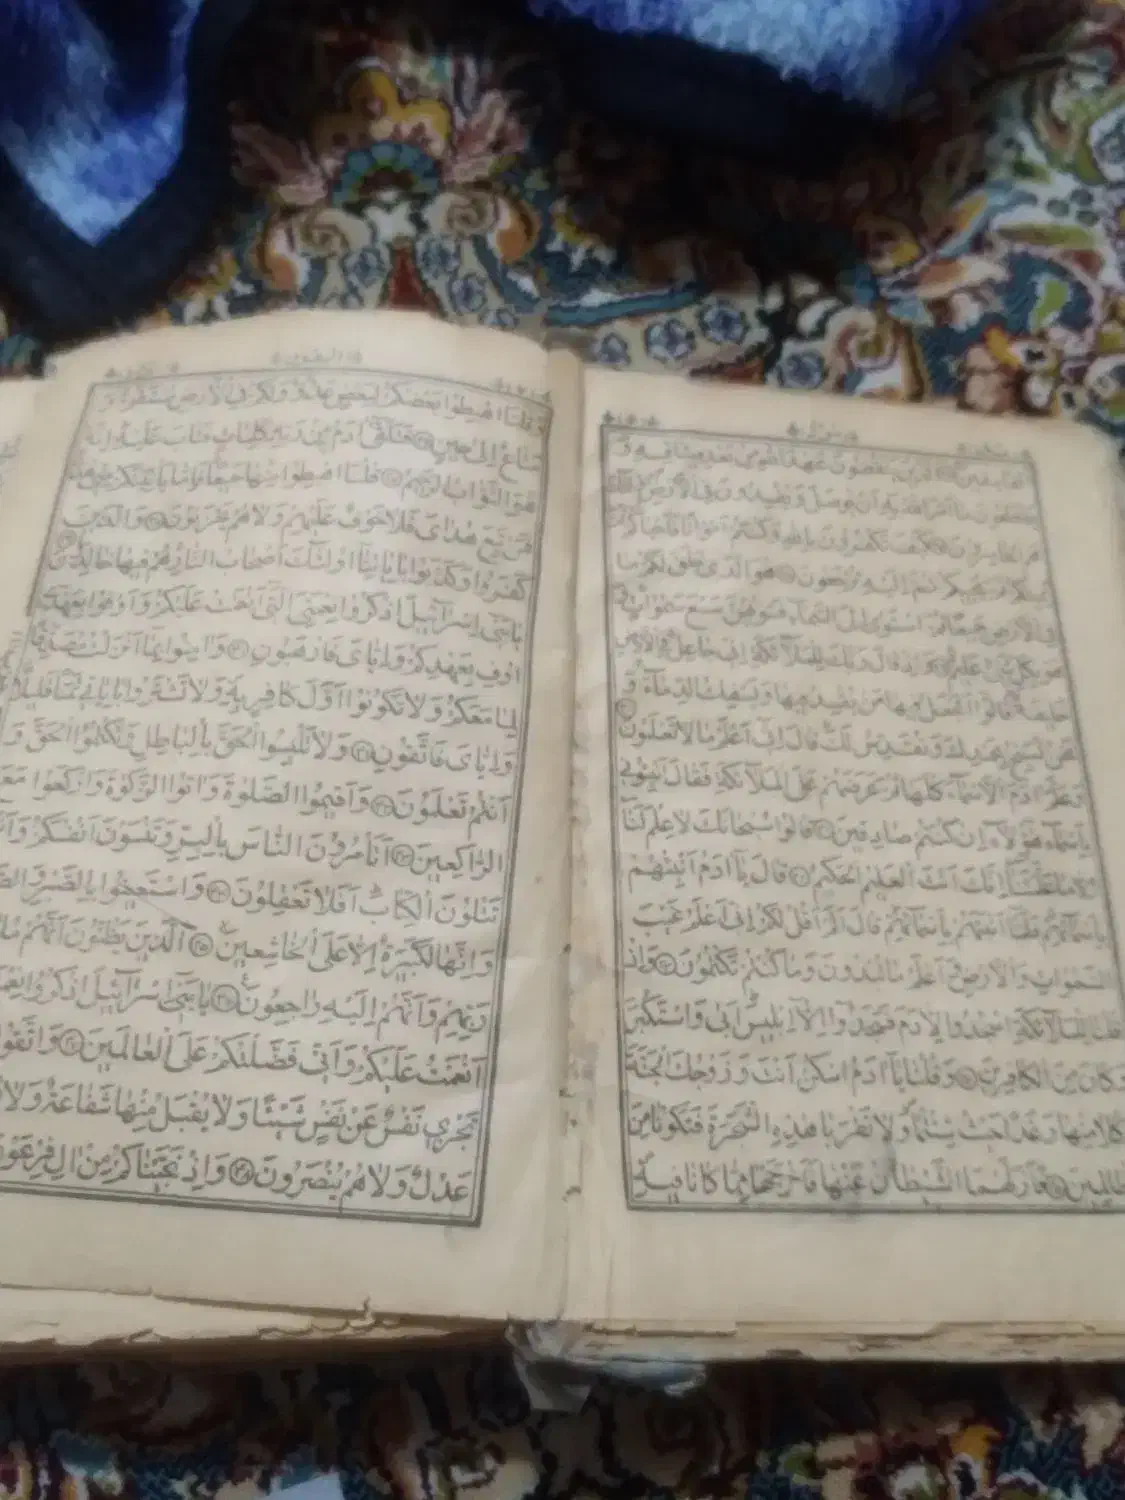 الْفَاسِقِينَ الَّذِينَ يَنْقُضُونَ عَهْدَ اللَّهِ مِنْ بَعْدِ مِيثَاقِهِ وَ
يَقْطَعُونَ مَا أَمَرَ اللَّهُ بِهِ أَنْ يُوصَلَ وَيُفْسِدُونَ فِي الْأَرْضِ أُولَٰئِكَ
هُمُ الْخَاسِرُونَ كَيْفَ تَكْفُرُونَ بِاللَّهِ وَكُنْتُمْ أَمْوَاتًا فَأَحْيَاكُمْ
ثُمَّ إِلَيْهِ تُرْجَعُونَ هُوَ الَّذِي خَلَقَ لَكُمْ مَا
فِي الْأَرْضِ جَمِيعًا ثُمَّ اسْتَوَىٰ إِلَى السَّمَاءِ فَسَوَّيٰهُنَّ سَبْعَ سَمٰوَاتٍ وَ
هُوَ بِكُلِّ شَيْءٍ عَلِيمٌ وَإِذْ قَالَ رَبُّكَ لِلْمَلَائِكَةِ إِنِّي جَاعِلٌ فِي الْأَرْضِ
خَلِيفَةً قَالُوا أَتَجْعَلُ فِيهَا مَنْ يُفْسِدُ فِيهَا وَيَسْفِكُ الدِّمَاءَ وَ
نَحْنُ نُسَبِّحُ بِحَمْدِكَ وَنُقَدِّسُ لَكَ قَالَ إِنِّي أَعْلَمُ مَا لَا تَعْلَمُونَ
وَعَلَّمَ آدَمَ الْأَسْمَاءَ كُلَّهَا ثُمَّ عَرَضَهُمْ عَلَى الْمَلَائِكَةِ فَقَالَ أَنْبِئُونِي
بِأَسْمَاءِ هَٰؤُلَاءِ إِنْ كُنْتُمْ صَادِقِينَ قَالُوا سُبْحَانَكَ لَا عِلْمَ لَنَا
إِلَّا مَا عَلَّمْتَنَا إِنَّكَ أَنْتَ الْعَلِيمُ الْحَكِيمُ قَالَ يَا آدَمُ أَنْبِئْهُمْ
بِأَسْمَائِهِمْ فَلَمَّا أَنْبَأَهُمْ بِأَسْمَائِهِمْ قَالَ أَلَمْ أَقُلْ لَكُمْ إِنِّي أَعْلَمُ غَيْبَ
السَّمٰوَاتِ وَالْأَرْضِ وَأَعْلَمُ مَا تُبْدُونَ وَمَا كُنْتُمْ تَكْتُمُونَ وَإِذْ
قُلْنَا لِلْمَلَائِكَةِ اسْجُدُوا لِآدَمَ فَسَجَدُوا إِلَّا إِبْلِيسَ أَبَىٰ وَاسْتَكْبَرَ
وَكَانَ مِنَ الْكَافِرِينَ وَقُلْنَا يَا آدَمُ اسْكُنْ أَنْتَ وَزَوْجُكَ الْجَنَّةَ
وَكُلَا مِنْهَا رَغَدًا حَيْثُ شِئْتُمَا وَلَا تَقْرَبَا هَٰذِهِ الشَّجَرَةَ فَتَكُونَا مِنَ
الظَّالِمِينَ فَأَزَلَّهُمَا الشَّيْطَانُ عَنْهَا فَأَخْرَجَهُمَا مِمَّا كَانَا فِيهِ
وَقُلْنَا اهْبِطُوا بَعْضُكُمْ لِبَعْضٍ عَدُوٌّ وَلَكُمْ فِي الْأَرْضِ مُسْتَقَرٌّ وَ
مَتَاعٌ إِلَىٰ حِينٍ فَتَلَقَّىٰ آدَمُ مِنْ رَبِّهِ كَلِمَاتٍ فَتَابَ عَلَيْهِ إِنَّهُ
هُوَ التَّوَّابُ الرَّحِيمُ قُلْنَا اهْبِطُوا مِنْهَا جَمِيعًا فَإِمَّا يَأْتِيَنَّكُمْ مِنِّي هُدًى
فَمَنْ تَبِعَ هُدَايَ فَلَا خَوْفٌ عَلَيْهِمْ وَلَا هُمْ يَحْزَنُونَ وَالَّذِينَ
كَفَرُوا وَكَذَّبُوا بِآيَاتِنَا أُولَٰئِكَ أَصْحَابُ النَّارِ هُمْ فِيهَا خَالِدُونَ
يَا بَنِي إِسْرَائِيلَ اذْكُرُوا نِعْمَتِيَ الَّتِي أَنْعَمْتُ عَلَيْكُمْ وَأَوْفُوا بِعَهْدِي
أُوفِ بِعَهْدِكُمْ وَإِيَّايَ فَارْهَبُونِ وَآمِنُوا بِمَا أَنْزَلْتُ مُصَدِّقًا
لِمَا مَعَكُمْ وَلَا تَكُونُوا أَوَّلَ كَافِرٍ بِهِ وَلَا تَشْتَرُوا بِآيَاتِي ثَمَنًا قَلِيلًا
وَإِيَّايَ فَاتَّقُونِ وَلَا تَلْبِسُوا الْحَقَّ بِالْبَاطِلِ وَتَكْتُمُوا الْحَقَّ وَ
أَنْتُمْ تَعْلَمُونَ وَأَقِيمُوا الصَّلٰوةَ وَآتُوا الزَّكٰوةَ وَارْكَعُوا مَعَ
الرَّاكِعِينَ أَتَأْمُرُونَ النَّاسَ بِالْبِرِّ وَتَنْسَوْنَ أَنْفُسَكُمْ وَأَنْتُمْ
تَتْلُونَ الْكِتَابَ أَفَلَا تَعْقِلُونَ وَاسْتَعِينُوا بِالصَّبْرِ وَ
وَإِنَّهَا لَكَبِيرَةٌ إِلَّا عَلَى الْخَاشِعِينَ الَّذِينَ يَظُنُّونَ أَنَّهُمْ
رَبِّهِمْ وَأَنَّهُمْ إِلَيْهِ رَاجِعُونَ يَا بَنِي إِسْرَائِيلَ اذْكُرُوا
أَنْعَمْتُ عَلَيْكُمْ وَأَنِّي فَضَّلْتُكُمْ عَلَى الْعَالَمِينَ وَاتَّقُوا
تَجْزِي نَفْسٌ عَنْ نَفْسٍ شَيْئًا وَلَا يُقْبَلُ مِنْهَا شَفَاعَةٌ وَلَا
عَدْلٌ وَلَا هُمْ يُنْصَرُونَ وَإِذْ نَجَّيْنَاكُمْ مِنْ آلِ فِرْعَوْنَ